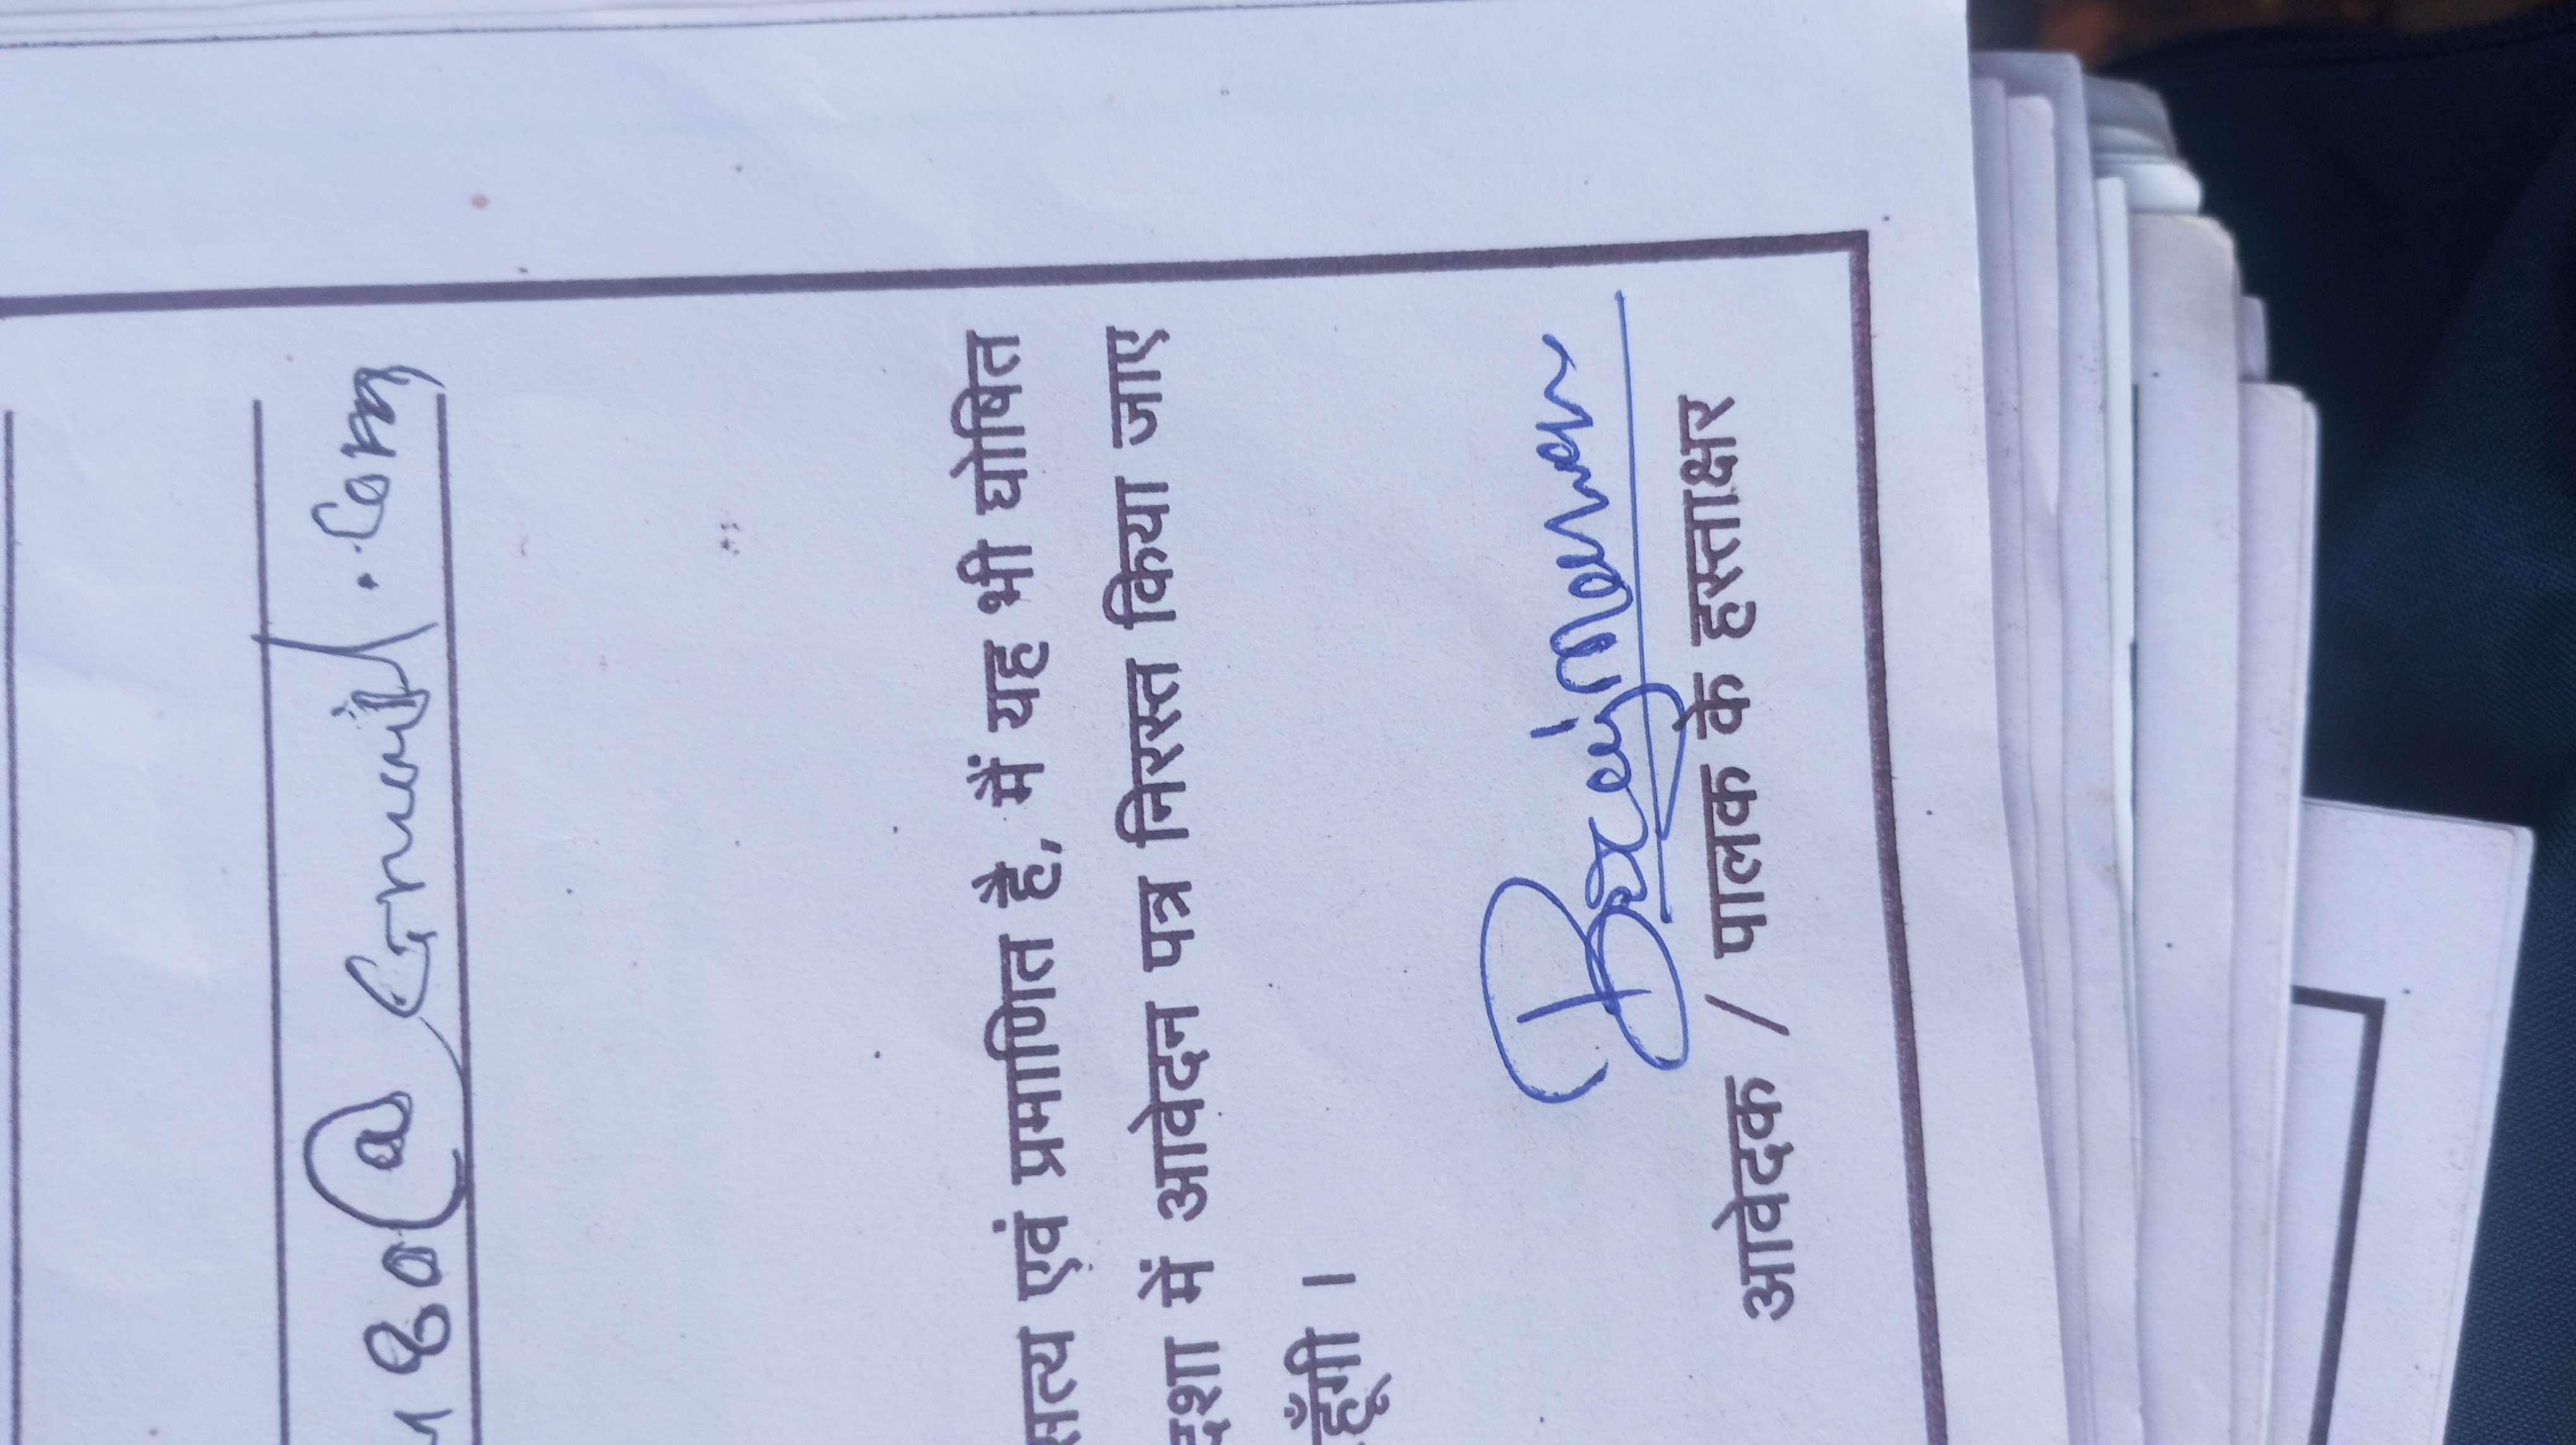 80@Gmail.com
सत्य एवं प्रमाणित है, मैं यह भी घोषित
दशा में आवेदन पत्र निरस्त किया जाए
हूँगी ।
Brajmohan
आवेदक / पालक के हस्ताक्षर